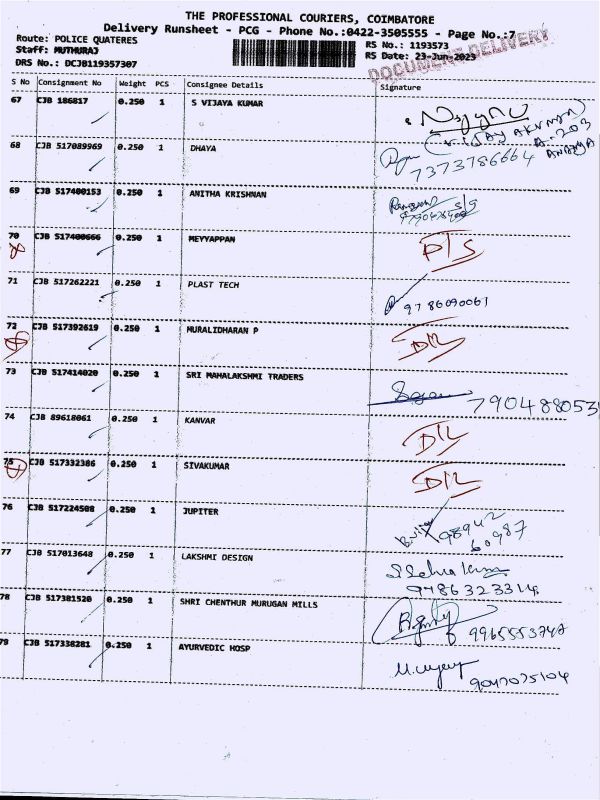 THE PROFESSIONAL COURIERS, COIMBATORE
Delivery Runsheet - PCG - Phone No.:0422-3505555 - Page No.:7
Route: POLICE QUATERES
RS No.: 1193573
Staff: MUTHURAJ
RS Date: 23-Jun-2023
DRS No.: DCJB119357307
DOCUMENT DELIVERY
S No Consignment No Weight PCS Consignee Details Signature
67 CJB 186817 0.250 1 S VIJAYA KUMAR
(VIJAYAKUMAR)
A-203
68 CJB 517089969 0.250 1 DHAYA 7373786664
69 CJB 517400153 0.250 1 ANITHA KRISHNAN
70 CJB 517400666 0.250 1 MEYYAPPAN DTS
71 CJB 517262221 0.250 1 PLAST TECH 9786090061
72 CJB 517392619 0.250 1 MURALIDHARAN P D/L
73 CJB 517414020 0.250 1 SRI MAHALAKSHMI TRADERS 790488053
74 CJB 89618061 0.250 1 KANVAR D/L
75 CJB 517332386 0.250 1 SIVAKUMAR D/L
76 CJB 517224508 0.250 1 JUPITER 98942
60987
77 CJB 517013648 0.250 1 LAKSHMI DESIGN
9486323314
78 CJB 517381520 0.250 1 SHRI CHENTHUR MURUGAN MILLS
79 CJB 517338281 0.250 1 AYURVEDIC HOSP 9047075104